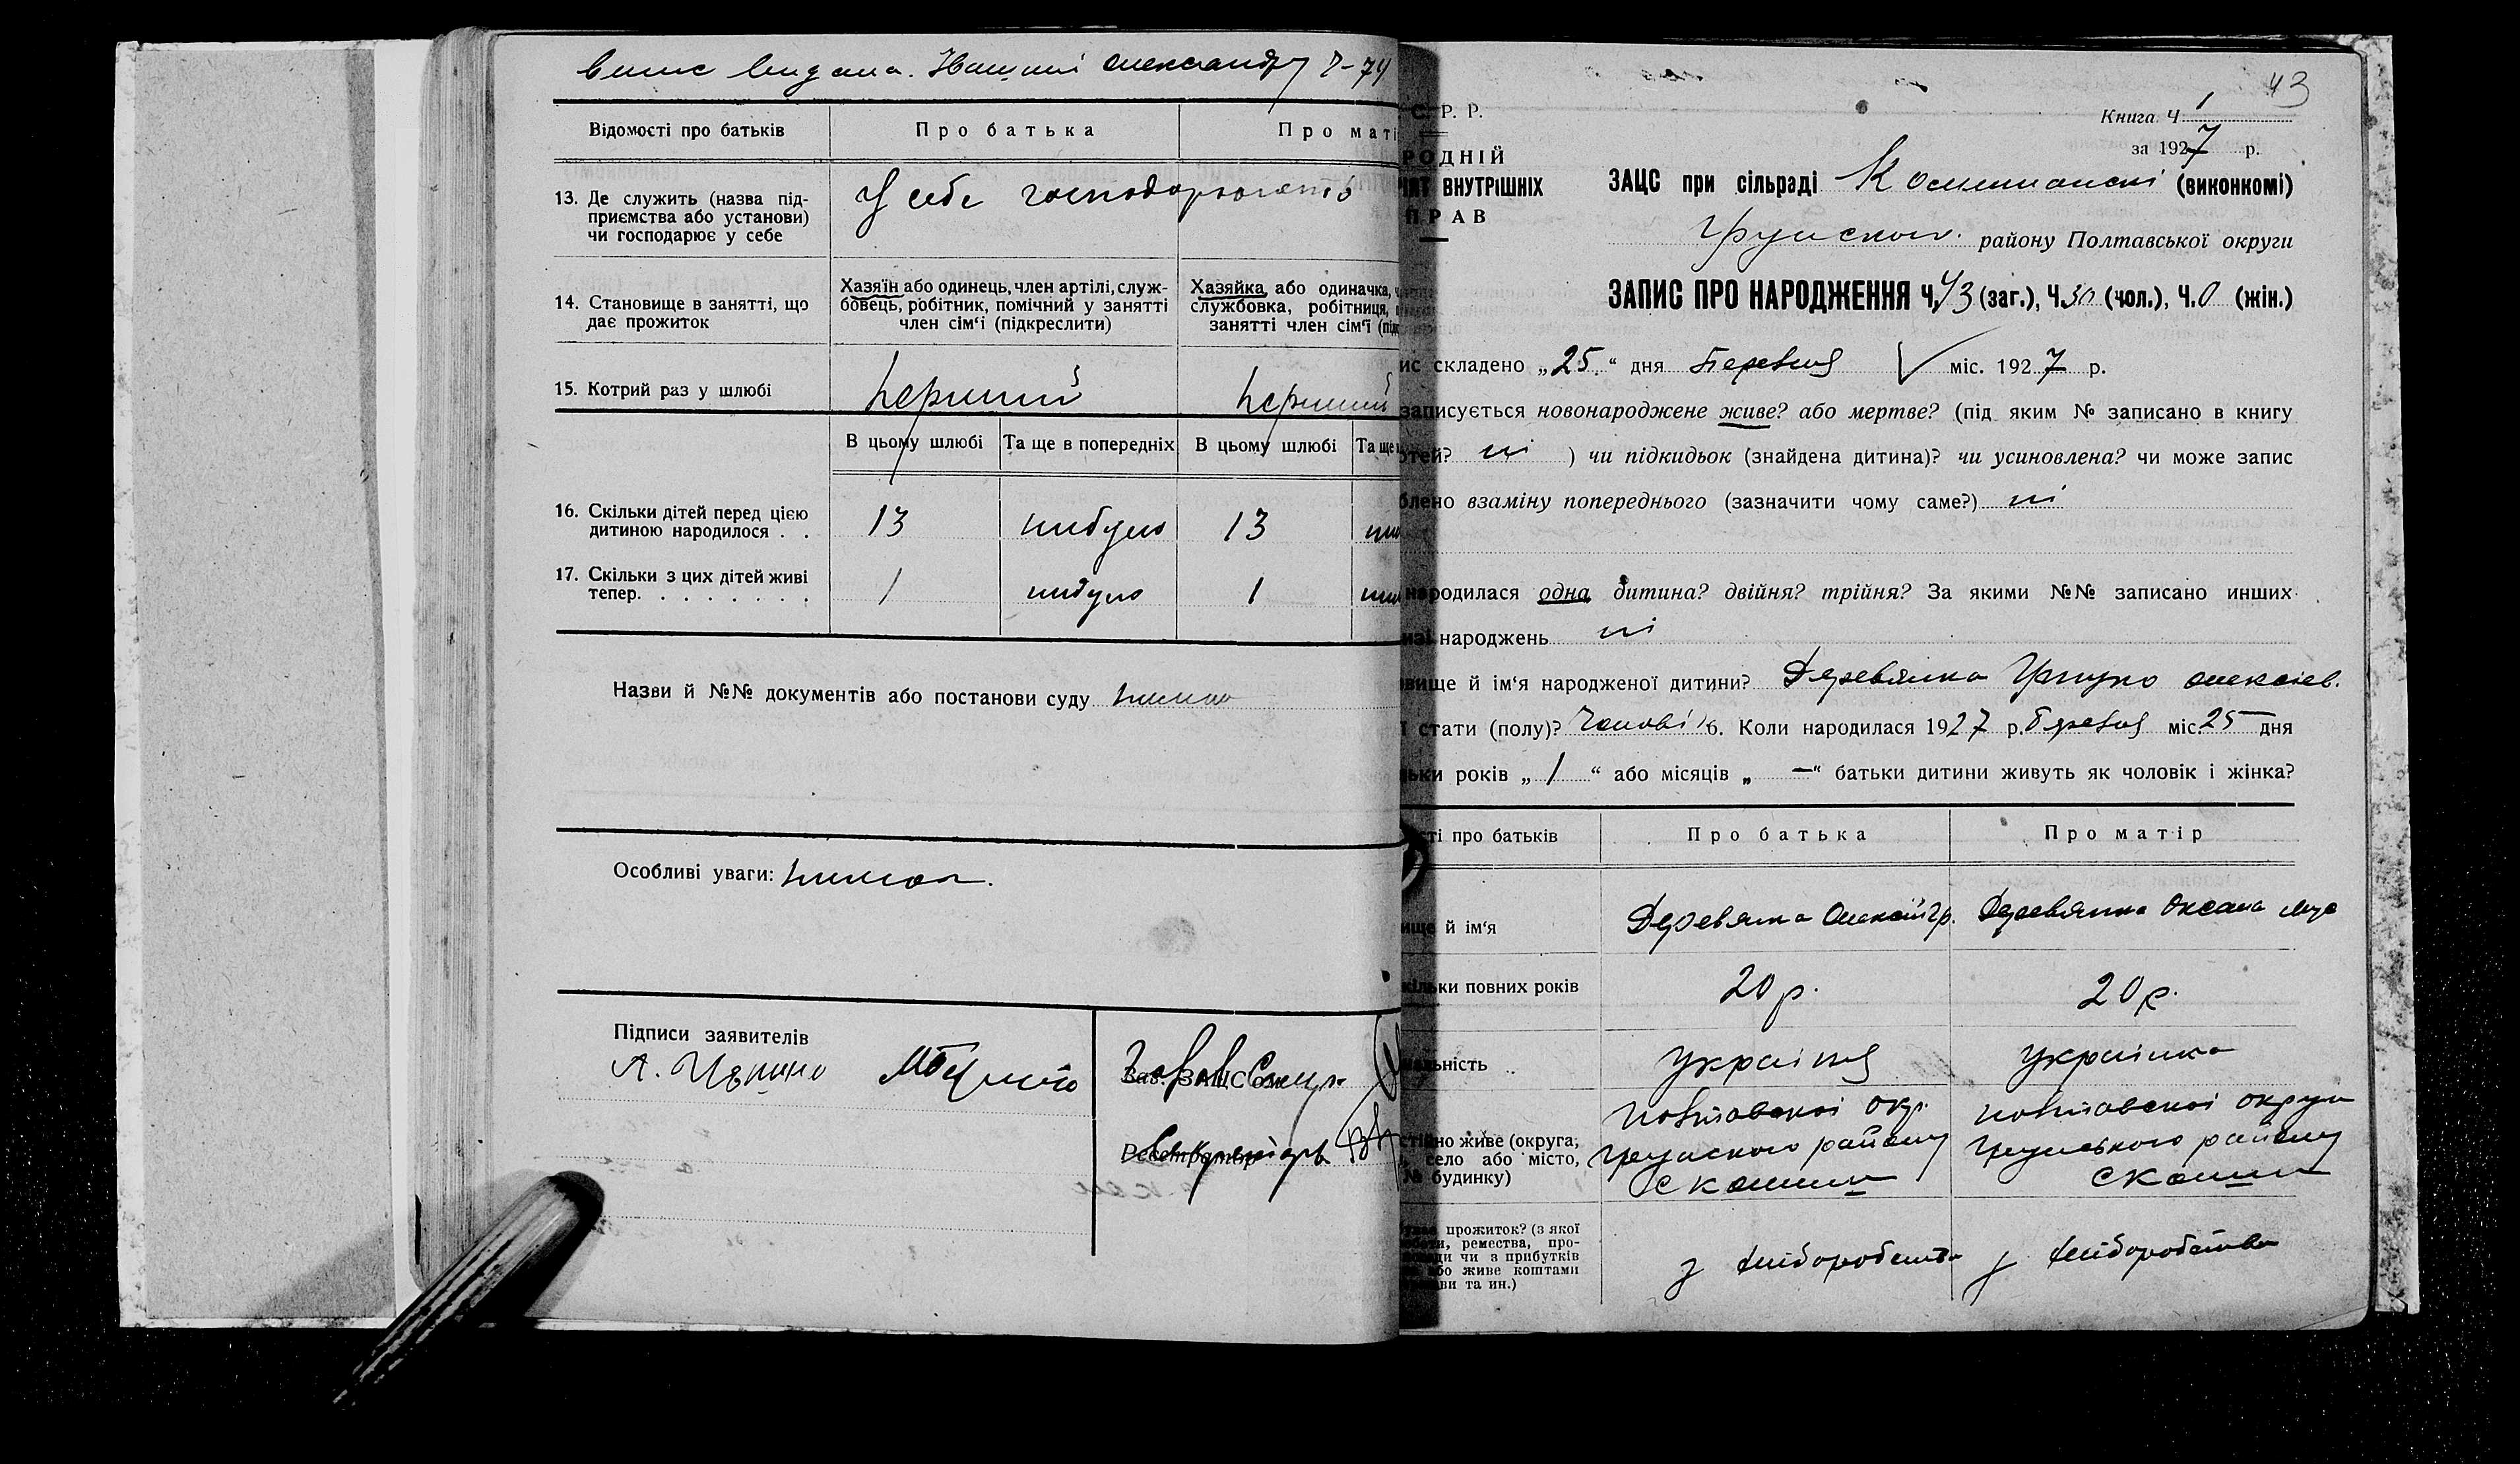 випис видана. Олександру
Відомості про батьків
Про батька
Про маті
13. Де служить (назва під-
приємства або установи)
чи господарює у себе
У себе господарюють
14. Становище в занятті, що
дає прожиток
Хазяїн або одинець, член артілі, служ-
бовець, робітник, помічний у занятті
член сім'ї (підкреслити)
Хазяйка, або одиначка,
службовка, робітниця,
занятті член сім'ї (під
15. Котрий раз у шлюбі
перший
перший
В цьому шлюбі
Та ще в попередніх
В цьому шлюбі
Та ще
16. Скільки дітей перед цією
дитиною народилося . .
13
небуло
13
17. Скільки з цих дітей живі
тепер. . . . . . . .
1
небуло
1
Назви й №№ документів або постанови суду немає
Особливі уваги: немає.
Підписи заявителів
Зав. ЗАЦС'ом
Реєстратор
Секретарь
43
С. Р. Р.
РОДНІЙ
ІЯТ ВНУТРІШНІХ
ПРАВ
Книга Ч 1
за 1927 р.
ЗАЦС при сільраді (виконкомі)
Грунского району Полтавської округи
ЗАПИС ПРО НАРОДЖЕННЯ Ч. 43 (заг.), Ч. 30 (чол.), Ч. 0 (жін.)
ис складено „25“ дня Березня міс. 1927 р.
записується новонароджене живе? або мертве? (під яким № записано в книгу
ртей? ні ) чи підкидьок (знайдена дитина)? чи усиновлена? чи може запис
блено взаміну попереднього (зазначити чому саме?) ні
народилася одна дитина? двійня? трійня? За якими №№ записано инших
народжень ні
вище й ім'я народженої дитини? Деревянко Грицько Олексіев.
ї стати (полу)? Чоловіч 6. Коли народилася 1927 р. Березня міс. 25 дня
льки років „1“ або місяців „—“ батьки дитини живуть як чоловік і жінка?
сті про батьків
Про батька
Про матір
ище й ім'я
Деревянко Олексій Гр.
Деревянко Оксана
кільки повних років
20 р.
20 р.
альність
Українец
Українка
стійно живе (округа,
село або місто,
№ будинку)
Полтавської окр.
Грунского району
Полтавської округи
Грунського району
прожиток? (з якої
ремества, про-
ди чи з прибутків
або живе коштами
ви та ин.)
з хліборобства
з хліборобства